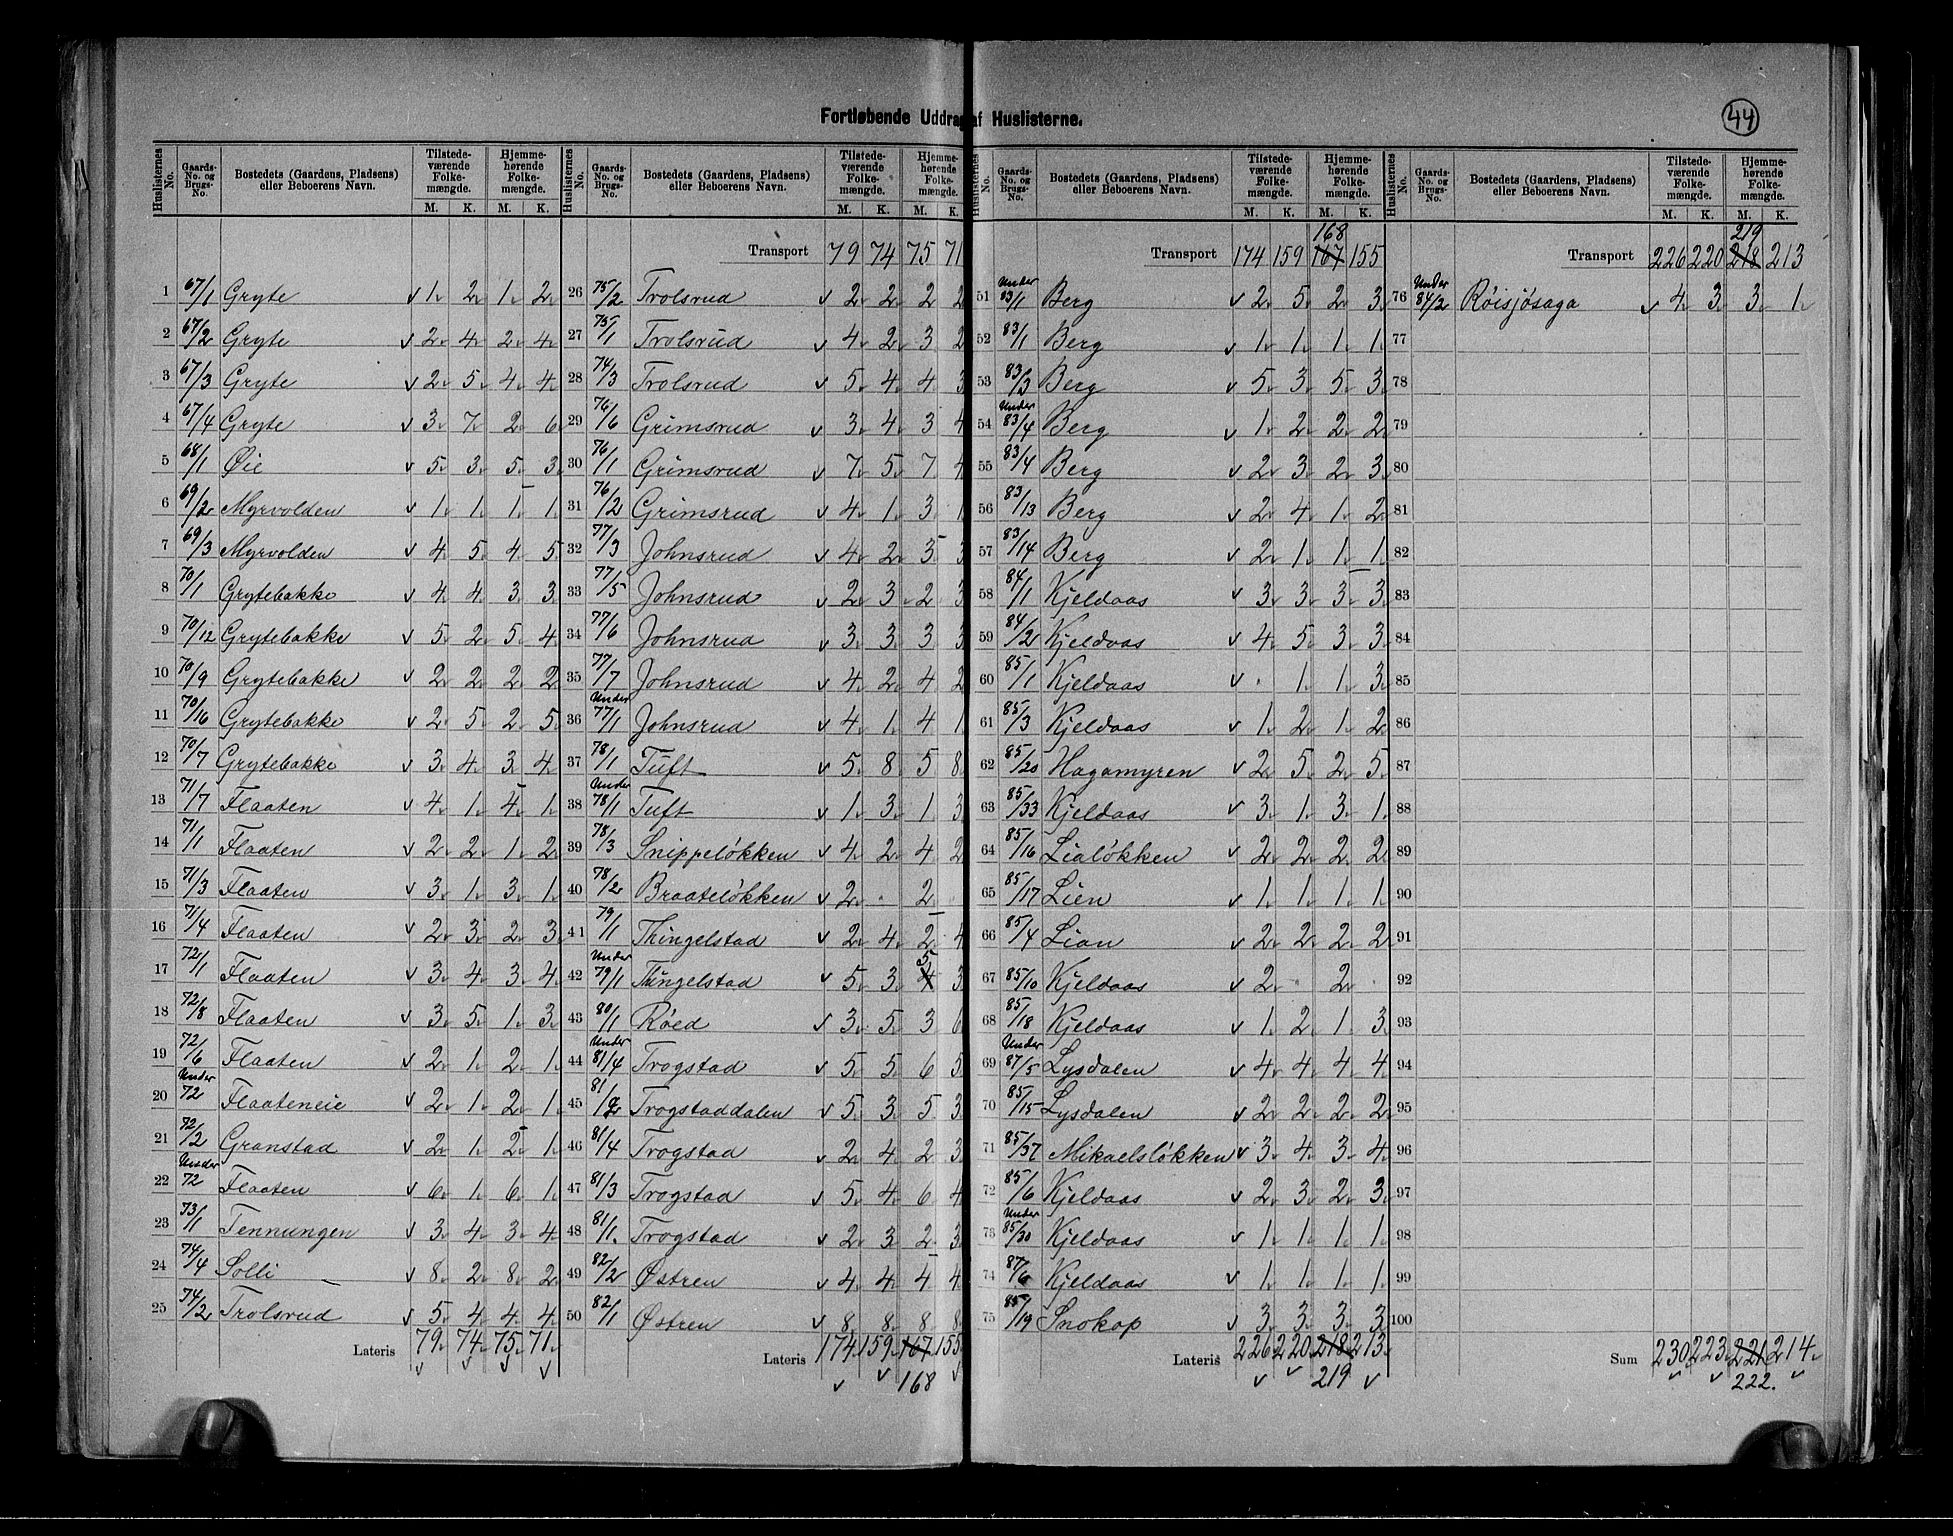 Fortløbende Uddrag af Huslisterne.
44
Huslisternes No. | Gaards-No. og Brugs-No. | Bostedets (Gaardens, Pladsens) eller Beboerens Navn. | Tilstedeværende Folkemængde. M. K. | Hjemmehørende Folkemængde. M. K.
1 67/1 Gryte 1 2 1 2
2 67/2 Gryte 2 4 2 4
3 67/3 Gryte 2 5 4 4
4 67/4 Gryte 3 7 2 6
5 68/1 Øie 5 3 5 3
6 69/2 Myrvolden 1 1 1 1
7 69/3 Myrvolden 4 5 4 5
8 70/1 Grytebakke 4 4 3 3
9 70/12 Grytebakke 5 2 5 4
10 70/9 Grytebakke 2 2 2 2
11 70/16 Grytebakke 2 5 2 5
12 70/7 Grytebakke 3 4 3 4
13 71/7 Flaaten 4 1 4 1
14 71/1 Flaaten 2 2 1 2
15 71/3 Flaaten 3 1 3 1
16 71/4 Flaaten 2 3 2 3
17 72/1 Flaaten 3 4 3 4
18 72/8 Flaaten 3 5 1 3
19 72/6 Flaaten 2 1 2 1
20 Under 72 Flaateneie 2 1 2 1
21 72/2 Granstad 2 1 2 1
22 Under 72 Flaaten 6 1 6 1
23 73/1 Tennungen 3 4 3 4
24 74/4 Solli 8 2 8 2
25 74/2 Trolsrud 5 4 4 4
Lateris 79 74 75 71
Huslisternes No. | Gaards-No. og Brugs-No. | Bostedets (Gaardens, Pladsens) eller Beboerens Navn. | Tilstedeværende Folkemængde. M. K. | Hjemmehørende Folkemængde. M. K.
Transport 79 74 75 71
26 75/2 Trolsrud 2 2 2 2
27 75/1 Trolsrud 4 2 3 2
28 74/3 Trolsrud 5 4 4 3
29 76/6 Grimsrud 3 4 3 4
30 76/1 Grimsrud 7 5 7 4
31 76/2 Grimsrud 4 1 3 1
32 77/3 Johnsrud 4 2 3 3
33 77/5 Johnsrud 2 3 2 3
34 77/6 Johnsrud 3 3 3 3
35 77/7 Johnsrud 4 2 4 2
36 Under 77/1 Johnsrud 4 1 4 1
37 78/1 Tuft 5 8 5 8
38 Under 78/1 Tuft 1 3 1 3
39 78/3 Snippeløkken 4 2 4 2
40 78/2 Braateløkken 2 . 2 .
41 79/1 Thingelstad 2 4 2 4
42 Under 79/1 Thingelstad 5 3 4 5 3
43 80/1 Røed 3 5 3 6
44 Under 81/4 Trogstad 5 5 6 5
45 81/2 Trogstaddalen 5 3 5 3
46 81/4 Trogstad 2 4 2 3
47 81/3 Trogstad 5 4 6 4
48 81/1. Trogstad 2 3 2 3
49 82/2 Østren 4 4 4 4
50 82/1 Østren 8 8 8 8
Lateris 174 159 167 155
168
Huslisternes No. | Gaards-No. og Brugs-No. | Bostedets (Gaardens, Pladsens) eller Beboerens Navn. | Tilstedeværende Folkemængde. M. K. | Hjemmehørende Folkemængde. M. K.
168
Transport 174 159 167 155
51 Under 83/1 Berg 2 5 2 3
52 83/1 Berg 1 1 1 1
53 83/3 Berg 5 3 5 3
54 Under 83/4 Berg 1 2 2 2
55 83/4 Berg 2 3 2 3
56 83/13 Berg 2 4 1 2
57 83/14 Berg 2 1 1 1
58 84/1 Kjeldaas 3 3 3 3
59 84/2 Kjeldaas 4 5 3 3
60 85/1 Kjeldaas . 1 1 3
61 85/3 Kjeldaas 1 2 1 2
62 85/20 Hagamyren 2 5 2 5
63 85/33 Kjeldaas 3 1 3 1
64 85/16 Lialøkken 2 2 2 2
65 85/17 Lien 1 1 1 1
66 85/4 Lian 2 2 2 2
67 85/10 Kjeldaas 2 2 .
68 85/18 Kjeldaas 1 2 1 3
69 Under 87/5 Lysdalen 4 4 4 4
70 85/15 Lysdalen 2 2 2 2
71 85/37 Mikaelsløkken 3 4 3 4
72 85/6 Kjeldaas 2 3 2 3
73 Under 85/30 Kjeldaas 1 1 1 1
74 87/6 Kjeldaas 1 1 1 1
75 85/19 Snokop 3 3 3 3
Lateris 226 220 218 213
219
Huslisternes No. | Gaards-No. og Brugs-No. | Bostedets (Gaardens, Pladsens) eller Beboerens Navn. | Tilstedeværende Folkemængde. M. K. | Hjemmehørende Folkemængde. M. K.
219
Transport 226 220 218 213
76 Under 84/2 Røisjøsaga 4 3 3 1
77
78
79
80
81
82
83
84
85
86
87
88
89
90
91
92
93
94
95
96
97
98
99
100
Sum 230 223 221 214
222.